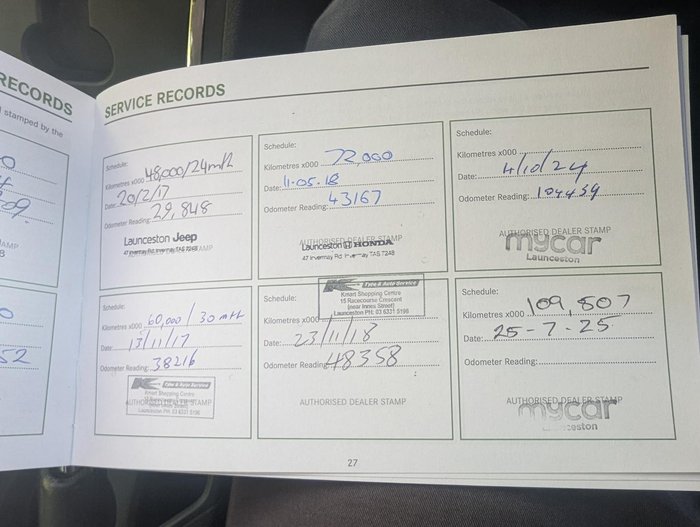 RECORDS
stamped by the
SERVICE RECORDS
Schedule:
Kilometres x000 48,000/24mth
Date: 20/2/17
Odometer Reading: 29,848
Launceston Jeep
AUTHORISED DEALER STAMP
47 Invermay Rd Invermay TAS 7248
Schedule:
Kilometres x000 72,000
Date: 11.05.18
Odometer Reading: 43167
AUTHORISED DEALER STAMP
Launceston HONDA
47 Invermay Rd Invermay TAS 7248
Schedule:
Kilometres x000
Date: 4/10/24
Odometer Reading: 104459
AUTHORISED DEALER STAMP
mycar
Launceston
Schedule:
Kilometres x000 60,000 / 30 mth
Date: 13/11/17
Odometer Reading: 38216
Tyre & Auto Service
Kmart Shopping Centre
AUTHORISED DEALER STAMP
Launceston PH: 03 6331 5196
Schedule:
Tyre & Auto Service
Kmart Shopping Centre
15 Racecourse Crescent
(near Innes Street)
Launceston PH: 03 6331 5196
Kilometres x000
Date: 23/11/18
Odometer Reading: 48358
AUTHORISED DEALER STAMP
Schedule:
Kilometres x000 109,507
Date: 25-7-25
Odometer Reading:
AUTHORISED DEALER STAMP
mycar
27